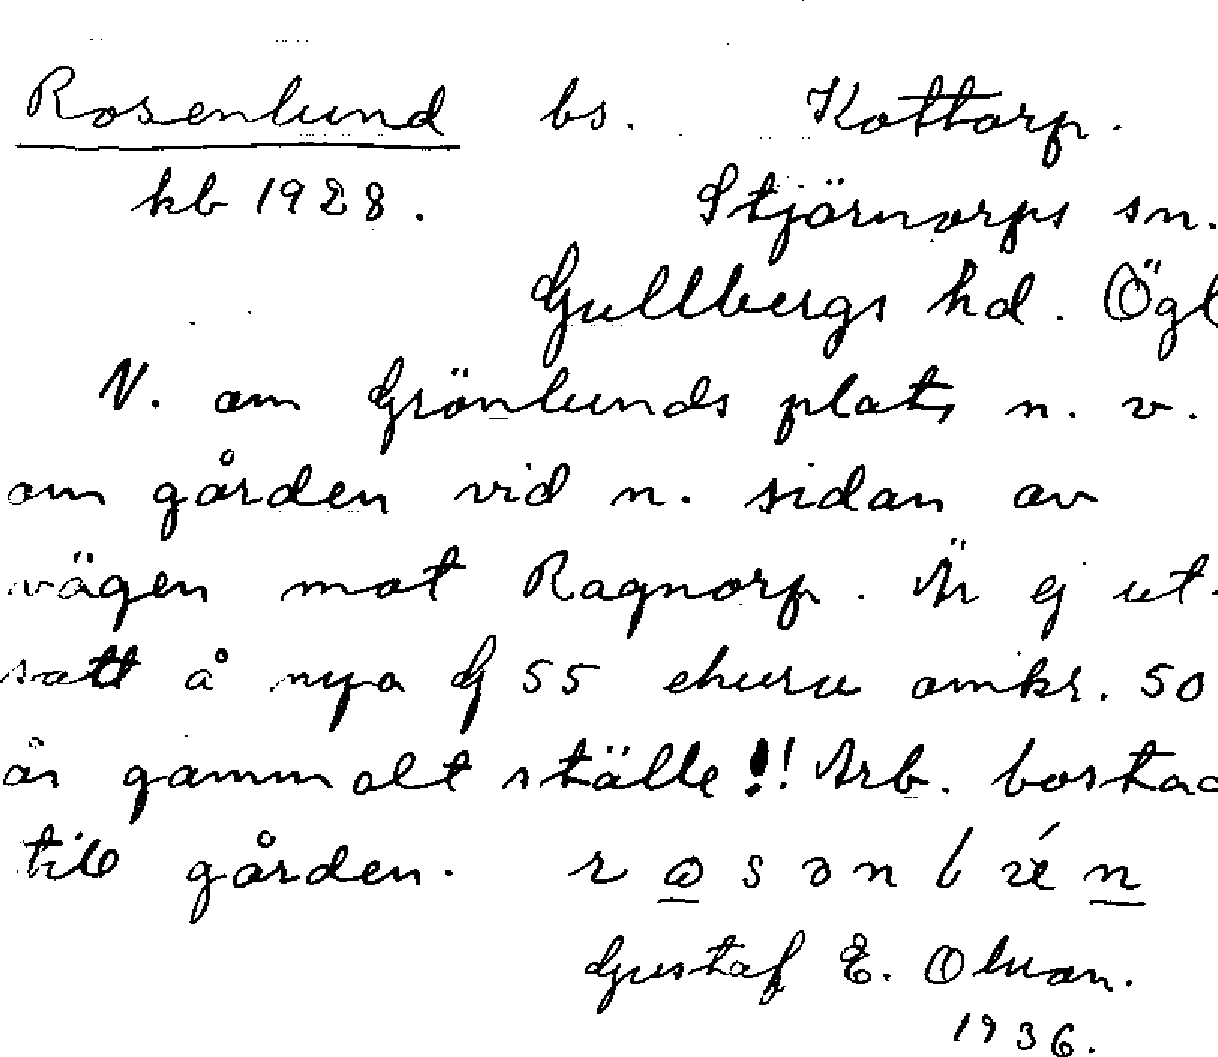 Rosenlund bs. Kottorp.
kb 1928. Stjärnorps sn.
Gullbergs hd. Ögl
V. om Grönlunds plats n. v.
om gården vid n. sidan av
vägen mot Ragnorp. Är ej ut-
satt å nya G 55 ehuru omkr. 50
år gammalt ställe!! Arb. bostad
till gården.
Gustaf E. Olson.
1936.